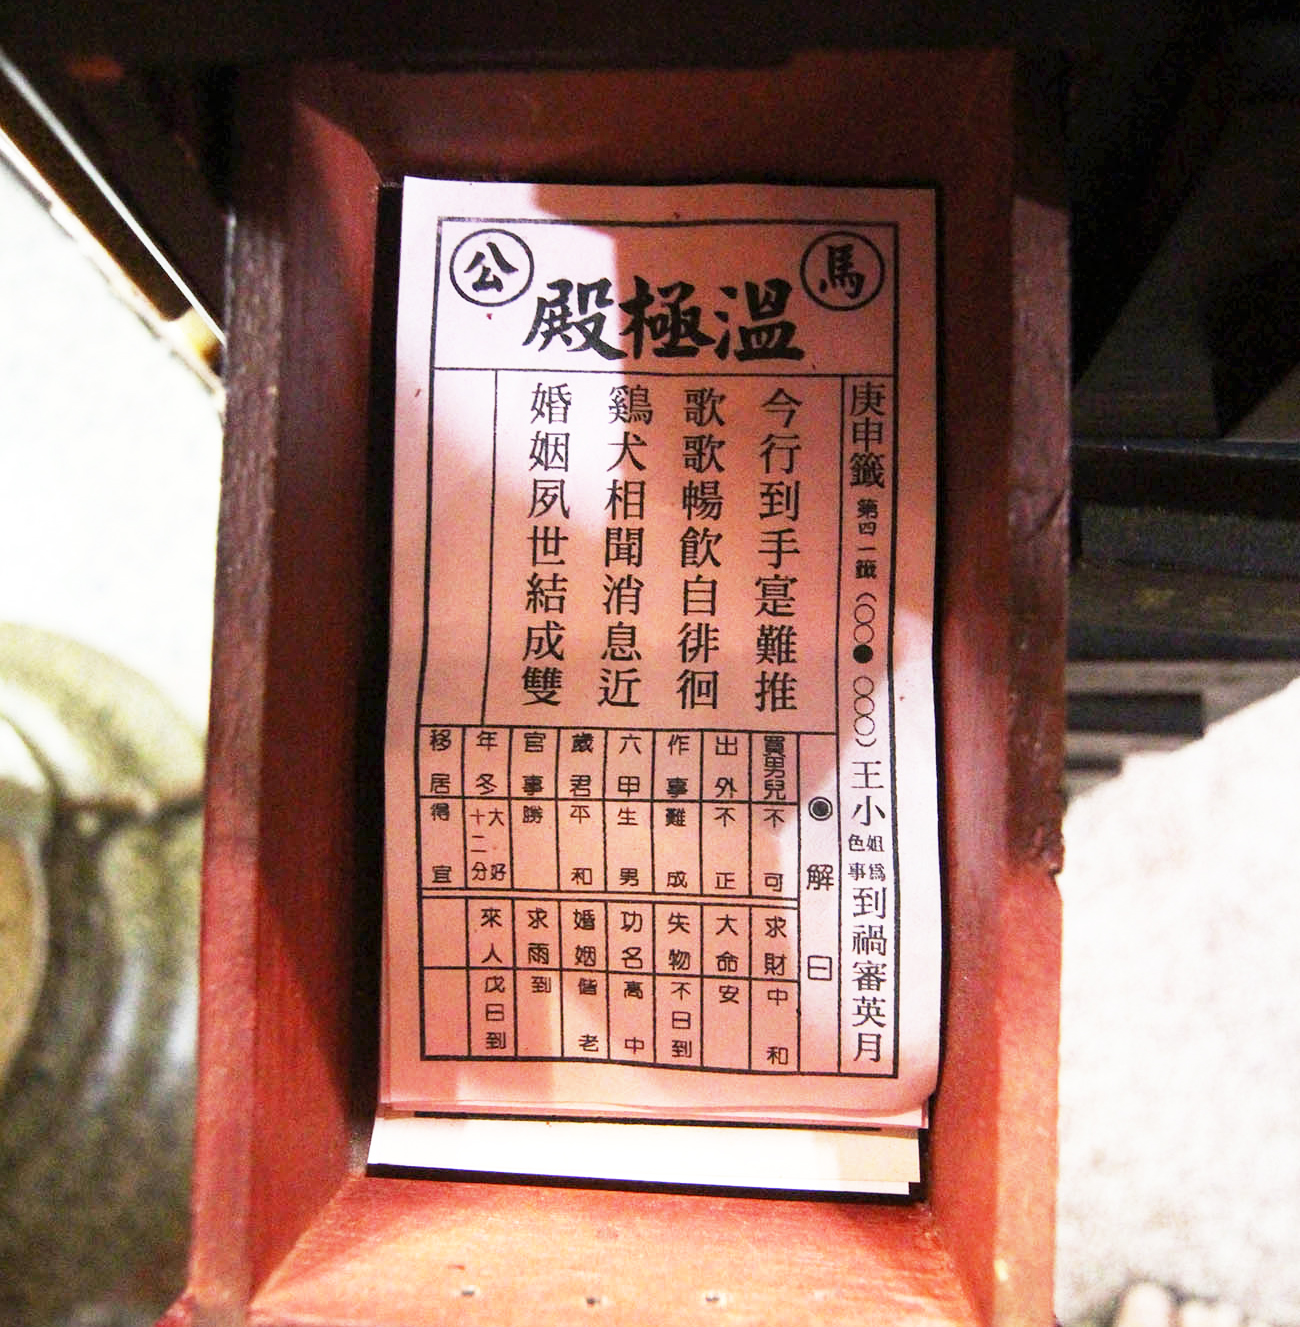 馬
公
溫極殿
庚申籤 第四一籤(○○● ○○○)王小姐為色事到禍審英月
今行到手寔難推
歌歌暢飲自徘徊
鷄犬相聞消息近
婚姻夙世結成雙
◉解曰
買男兒 不可
出外 不正
作事 難成
六甲 生男
歲君 平和
官事 勝
年冬 大好十二分
移居 得宜
求財 中和
大命 安
失物 不日到
功名 高中
婚姻 偕老
求雨 到
來人 戊日到